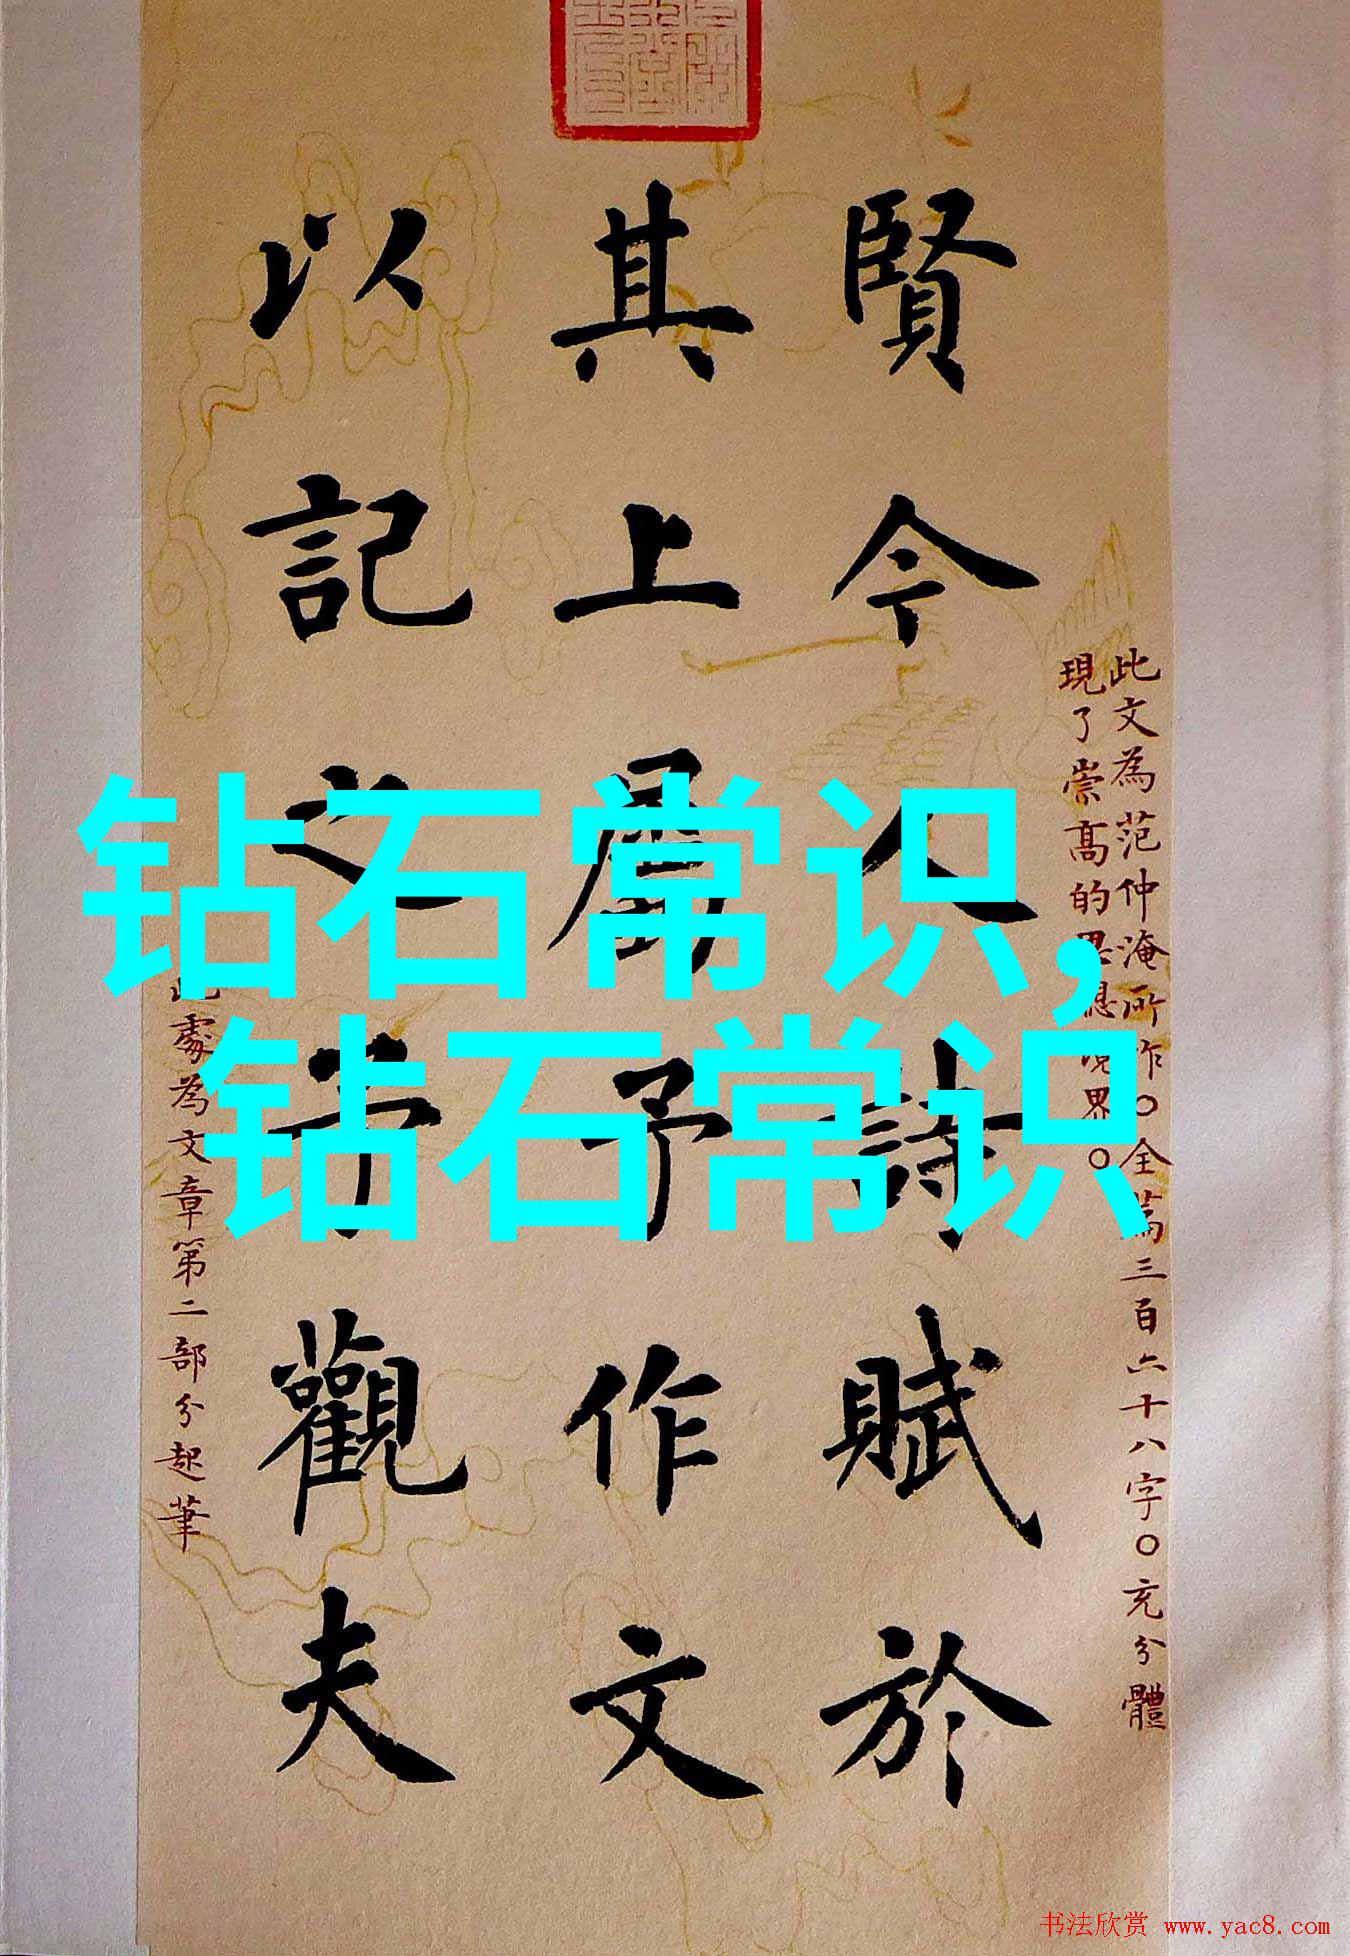 賢今人詩賦於
其上屬予作文
以記之予觀夫
此文為范仲淹所作○全篇三百六十八字○充分體
現了崇高的思想境界○
此處為文章第二部分起筆
钻石常识,
钻石常识
书法欣赏 www.yac8.com